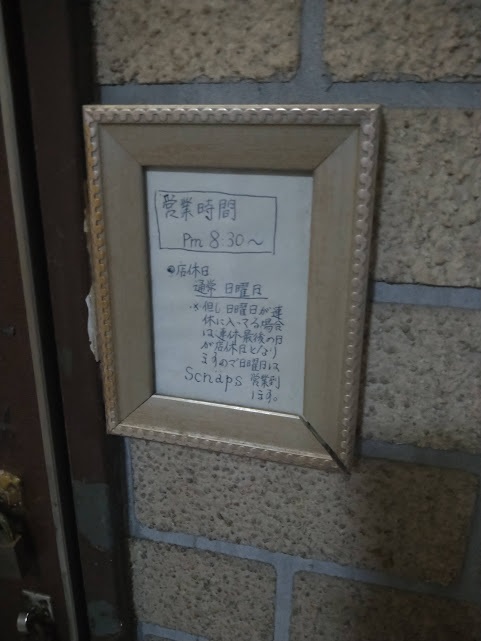 営業時間
Pm 8 30～
●店休日
通常 日曜日
※但し日曜日が連
休に入ってる場合
は連休最後の日
が店休日となり
ますので日曜日は
Schaps 営業致
します。